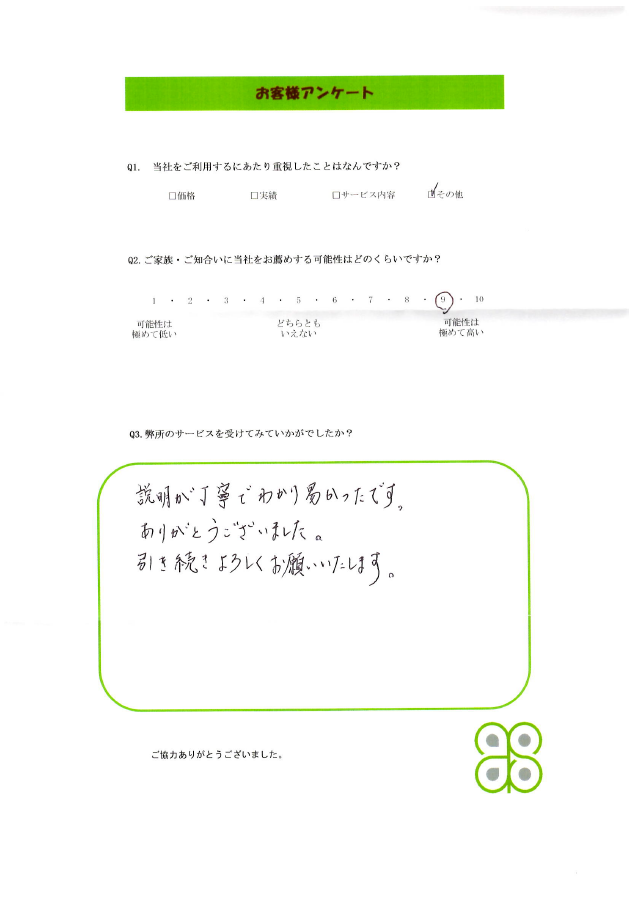 お客様アンケート
Q1. 当社をご利用するにあたり重視したことはなんですか?
□価格 □実績 □サービス内容 ☑その他
Q2.ご家族・ご知合いに当社をお薦めする可能性はどのくらいですか?
1 ・ 2 ・ 3 ・ 4 ・ 5 ・ 6 ・ 7 ・ 8 ・ 9 ・ 10
可能性は どちらとも 可能性は
極めて低い いえない 極めて高い
Q3.弊所のサービスを受けてみていかがでしたか?
説明が丁寧でわかり易かったです。
ありがとうございました。
引き続きよろしくお願いいたします。
ご協力ありがとうございました。